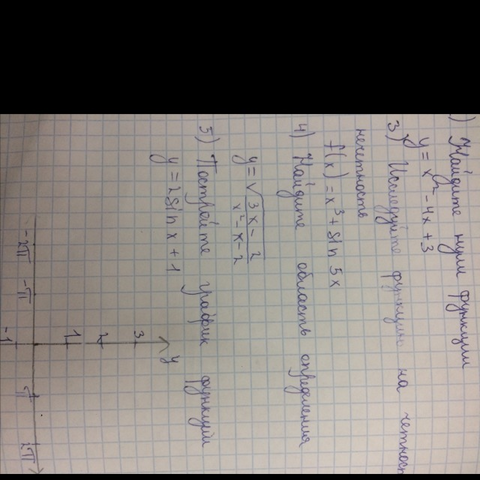 ) Найдите нули функции
y = x² - 4x + 3
3) Исследуйте функцию на четност
нечетность
f(x) = x³ + sin 5x
4) Найдите область определения
y = √(3x - 2 / x² - x - 2)
5) Постройте график функции
y = 2 sin x + 1
y
3
2
1
-2π -π π 2π
-1